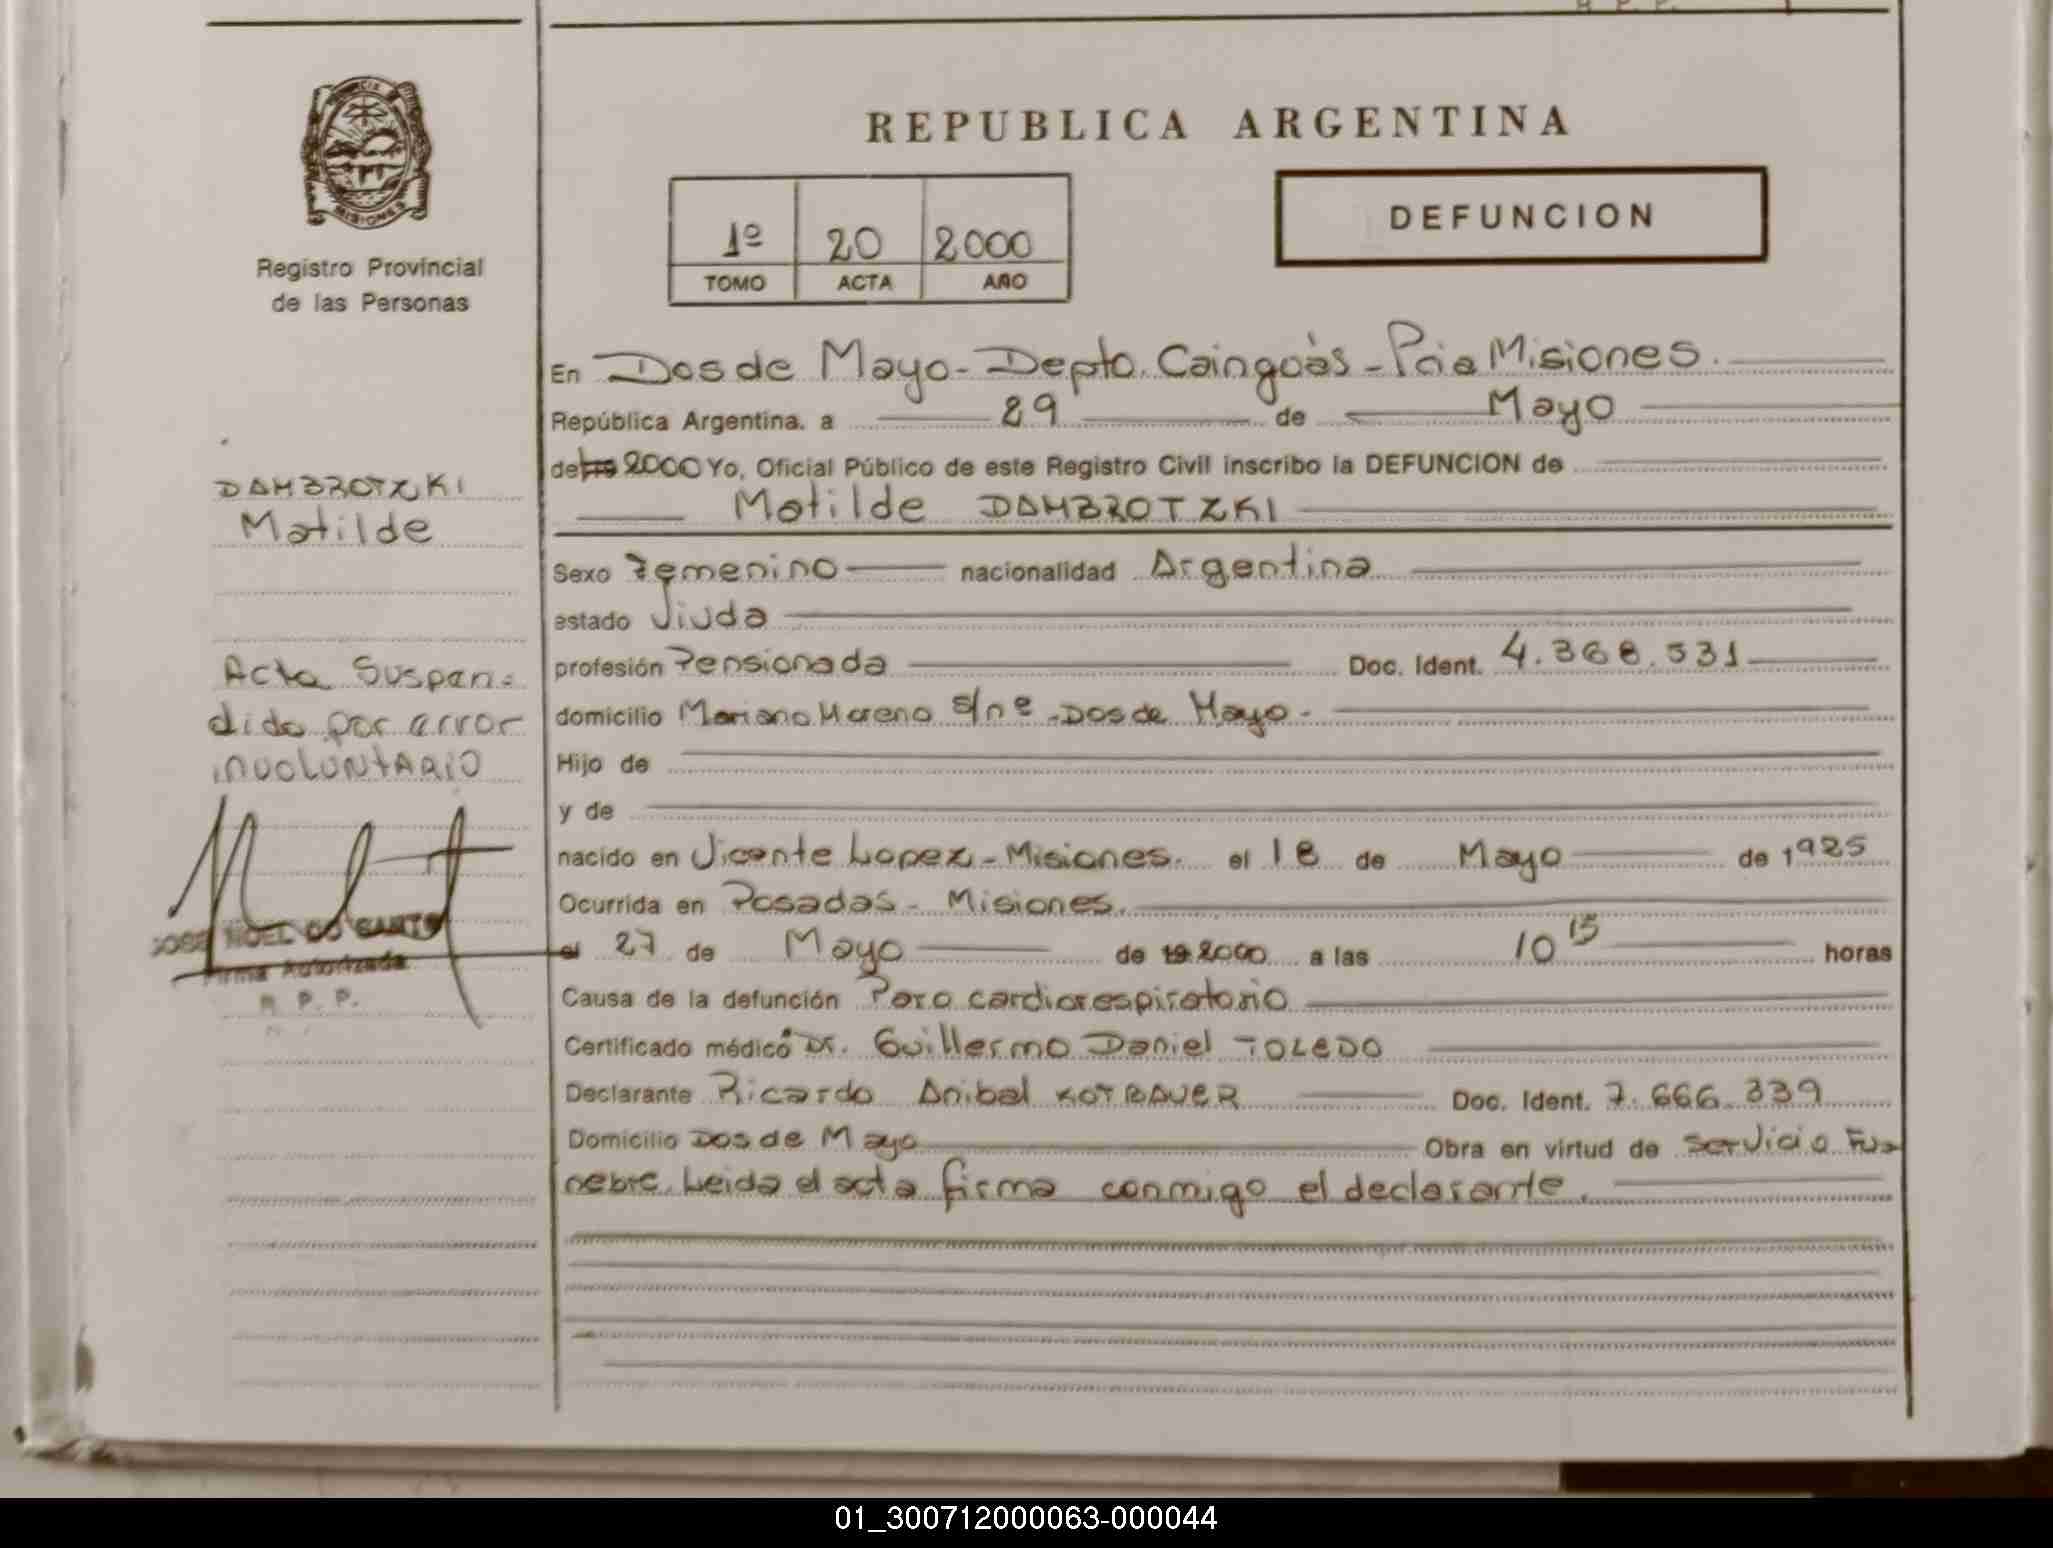 REPUBLICA ARGENTINA
MISIONES
Registro Provincial
de las Personas
1º 20 2000
TOMO ACTA AÑO
DEFUNCION
En Dos de Mayo - Depto. Caingoàs - Pcia Misiones.
República Argentina. a 29 de Mayo
de 2000 Yo, Oficial Público de este Registro Civil inscribo la DEFUNCION de
Matilde DAMBROTZKI
DAMBROTZKI
Matilde
Acta Suspen=
dida por error
involuntario
JOSE NOEL DO SANTO
Firma Autorizada
R. P. P.
Sexo Femenino nacionalidad Argentina
estado Viuda
profesión Pensionada Doc. Ident. 4.368.531
domicilio Mariano Moreno s/nº - Dos de Mayo -
Hijo de
y de
nacido en Vicente Lopez - Misiones. el 18 de Mayo de 1925
Ocurrida en Posadas - Misiones.
el 27 de Mayo de 19 2000 a las 10 15 horas
Causa de la defunción Paro cardiorespiratorio
Certificado médico Dr. Guillermo Daniel TOLEDO
Declarante Ricardo Anibal KOTBAUER Doc. Ident. 7.666.339
Domicilio Dos de Mayo Obra en virtud de Servicio Fu=
nebre. Leida el acta firma conmigo el declarante.
01_300712000063-000044